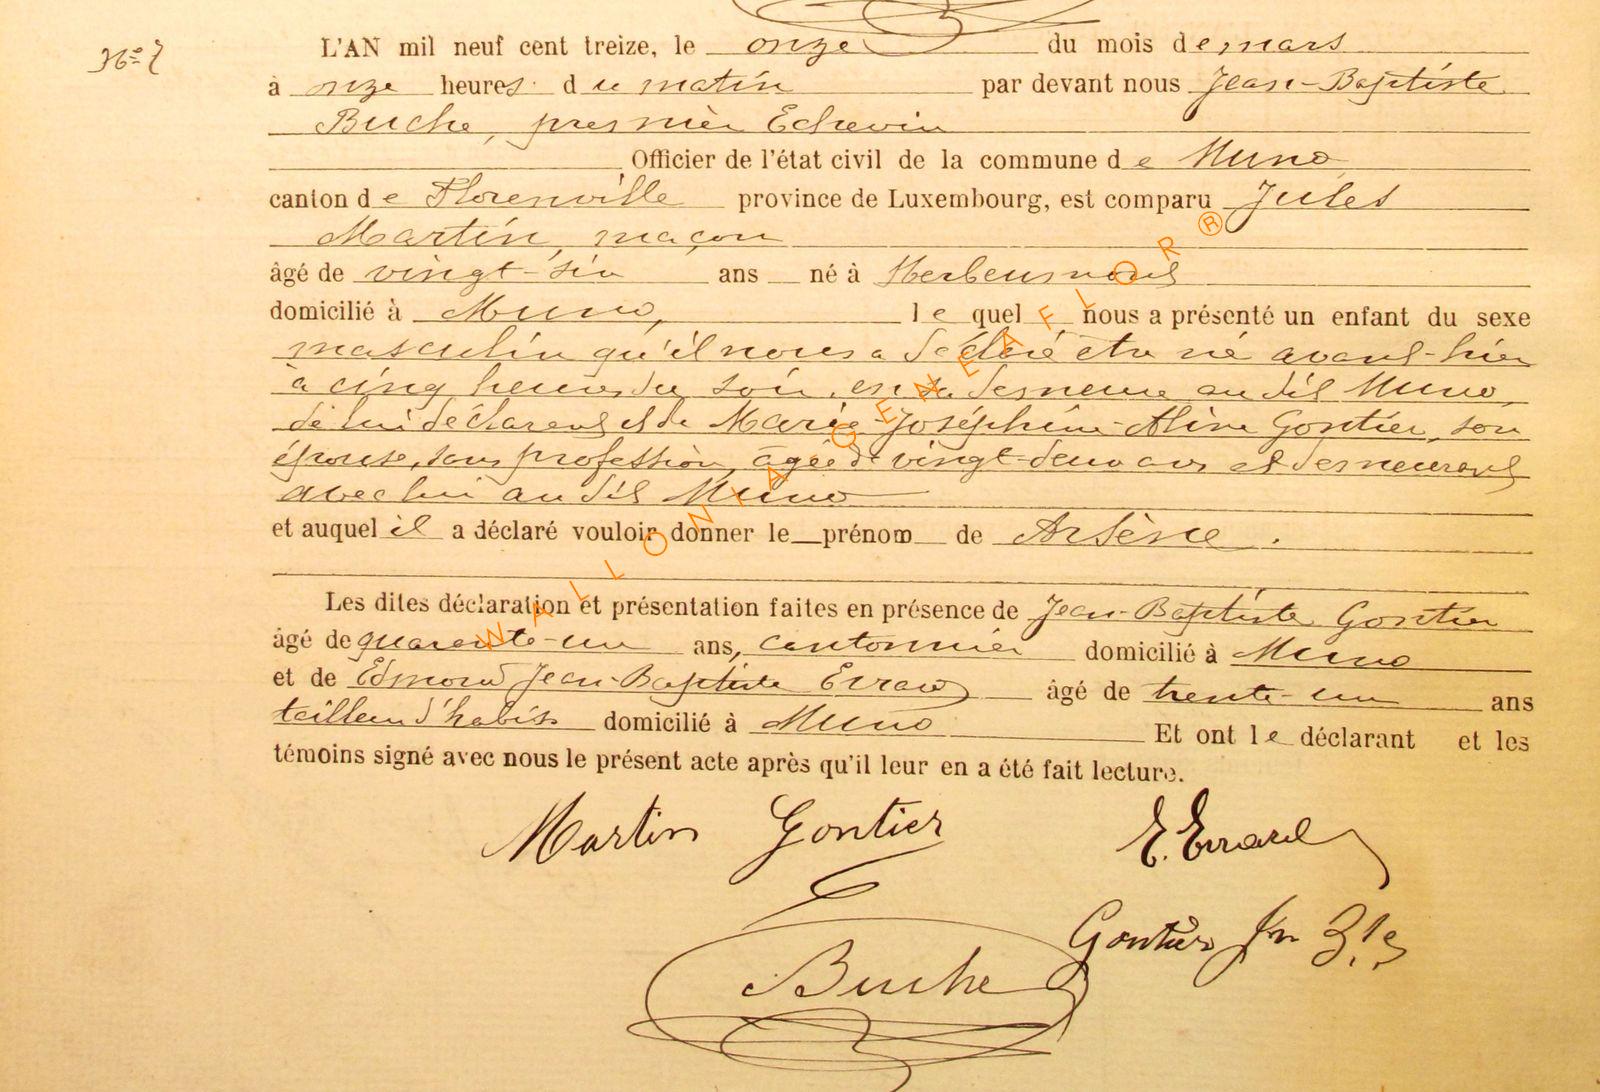 No 7
L'AN mil neuf cent treize, le onze du mois de mars
à onze heures du matin par devant nous Jean-Baptiste
Buche, premier Echevin
Officier de l'état civil de la commune de Muno
canton de Florenville province de Luxembourg, est comparu Jules
Martin, maçon
âgé de vingt-six ans né à Herbeumont
domicilié à Muno, lequel nous a présenté un enfant du sexe
masculin qu'il nous a déclaré être né avant-hier
à cinq heures du soir, en sa demeure au dit Muno,
de lui déclarant et de Marie Joséphine Aline Gontier, son
épouse, sans profession, âgée de vingt-deux ans et demeurant
avec lui au dit Muno
et auquel il a déclaré vouloir donner le prénom de Arsène.
Les dites déclaration et présentation faites en présence de Jean-Baptiste Gontier
âgé de quarante-un ans, cantonnier domicilié à Muno
et de Edmond Jean-Baptiste Errard âgé de trente-un ans
tailleur d'habits domicilié à Muno Et ont le déclarant et les
témoins signé avec nous le présent acte après qu'il leur en a été fait lecture.
Martin Gontier E. Errard
Gontier Jn Bte
Buche
WALLONIA-GENEAFLOR ®